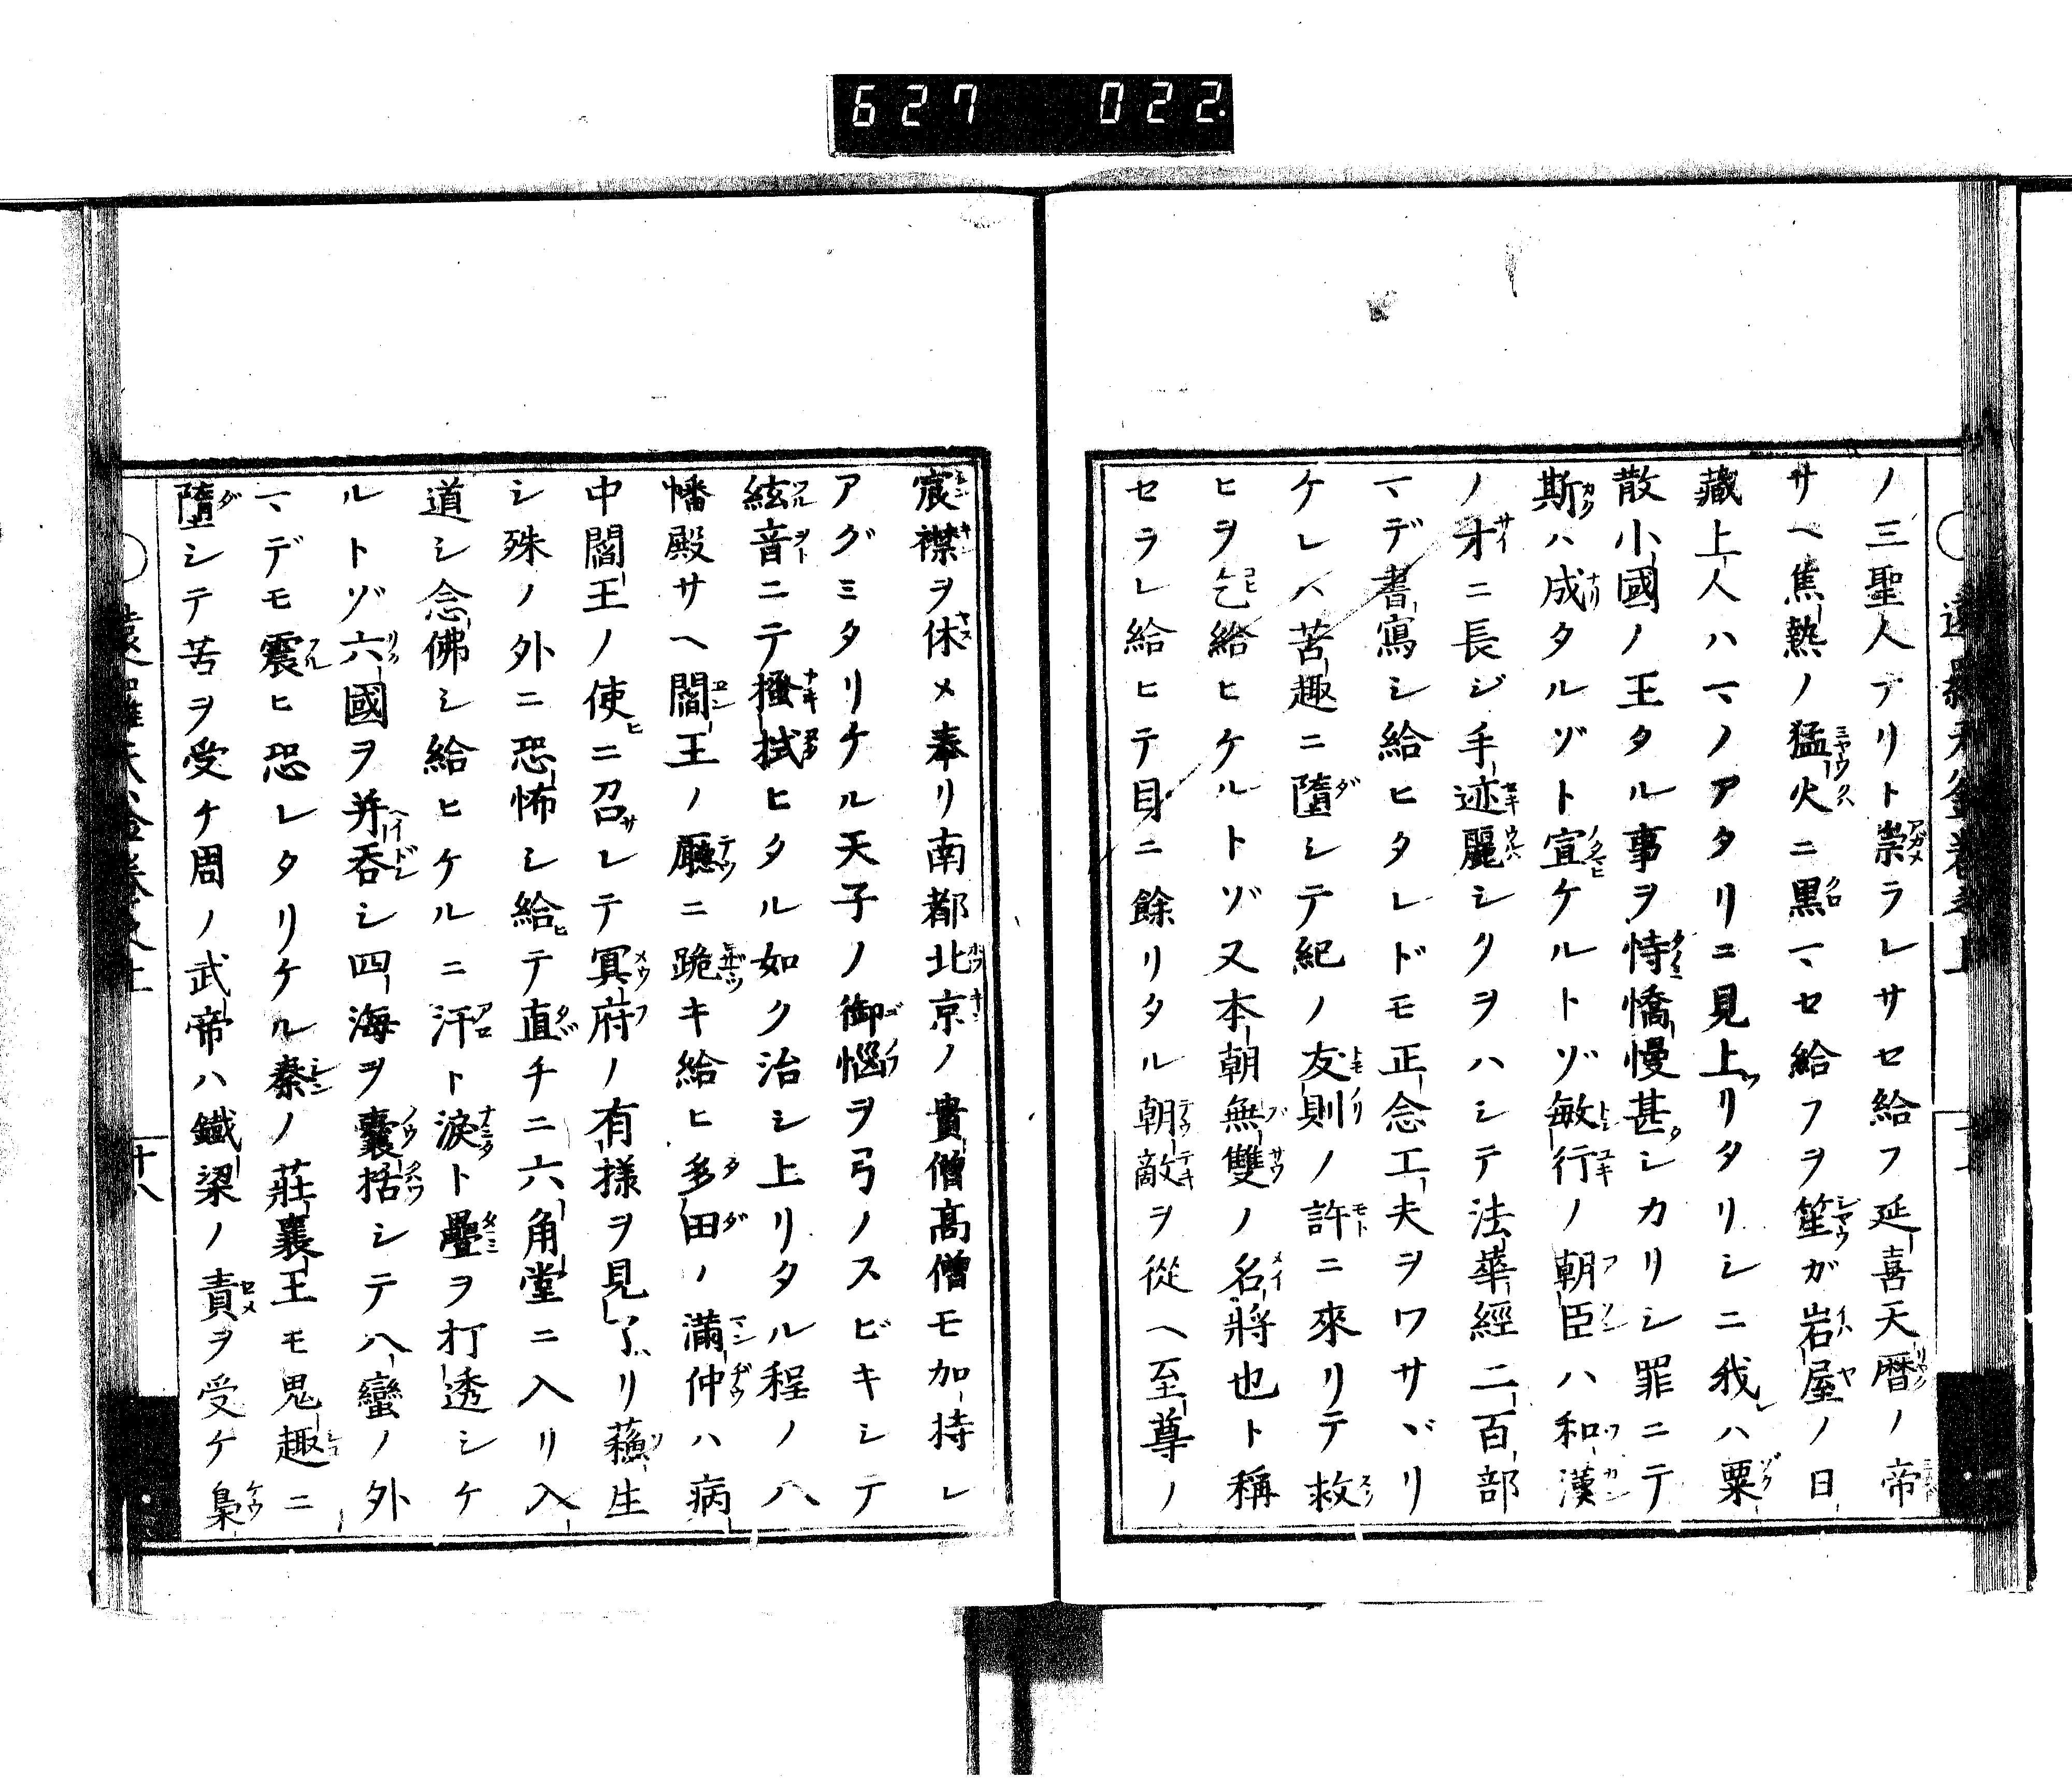 627 022.
ノ三聖人アリト崇ラレサセ給フ延喜天暦ノ帝
サヘ焦熱ノ猛火ニ黒マセ給フヲ笙ガ岩屋ノ日
藏上人ハマノアタリニ見上リタリシニ我ハ粟
散小國ノ王タル事ヲ恃憍慢甚シカリシ罪ニテ
斯ハ成タルゾト宣ケルトゾ敏行ノ朝臣ハ和漢
ノ才ニ長ジ手迹麗シクヲハシテ法華經二百部
マデ書寫シ給ヒタレドモ正念工夫ヲワサヾリ
ケレハ苦趣ニ墮シテ紀ノ友則ノ許ニ來リテ救
ヒヲ乞給ヒケルトゾ又本朝無雙ノ名將也ト稱
セラレ給ヒテ目ニ餘リタル朝敵ヲ從ヘ至尊ノ
宸襟ヲ休メ奉リ南都北京ノ貴僧髙僧モ加持シ
アグミタリケル天子ノ御惱ヲ弓ノスビキシテ
絃音ニテ搔拭ヒタル如ク治シ上リタル程ノ八
幡殿サヘ閻王ノ廳ニ跪キ給ヒ多田ノ滿仲ハ病
中閻王ノ使ニ召レテ冥府ノ有樣ヲ見了リ蘓生
シ殊ノ外ニ恐怖シ給テ直チニ六角堂ニ入リ入
道シ念佛シ給ヒケルニ汗ト淚ト疊ヲ打透シケ
ルトゾ六國ヲ并呑シ四海ヲ嚢括シテ八蠻ノ外
マデモ震ヒ恐レタリケル秦ノ莊襄王モ鬼趣ニ
墮シテ苦ヲ受ケ周ノ武帝ハ鐵梁ノ責ヲ受ケ梟
十八